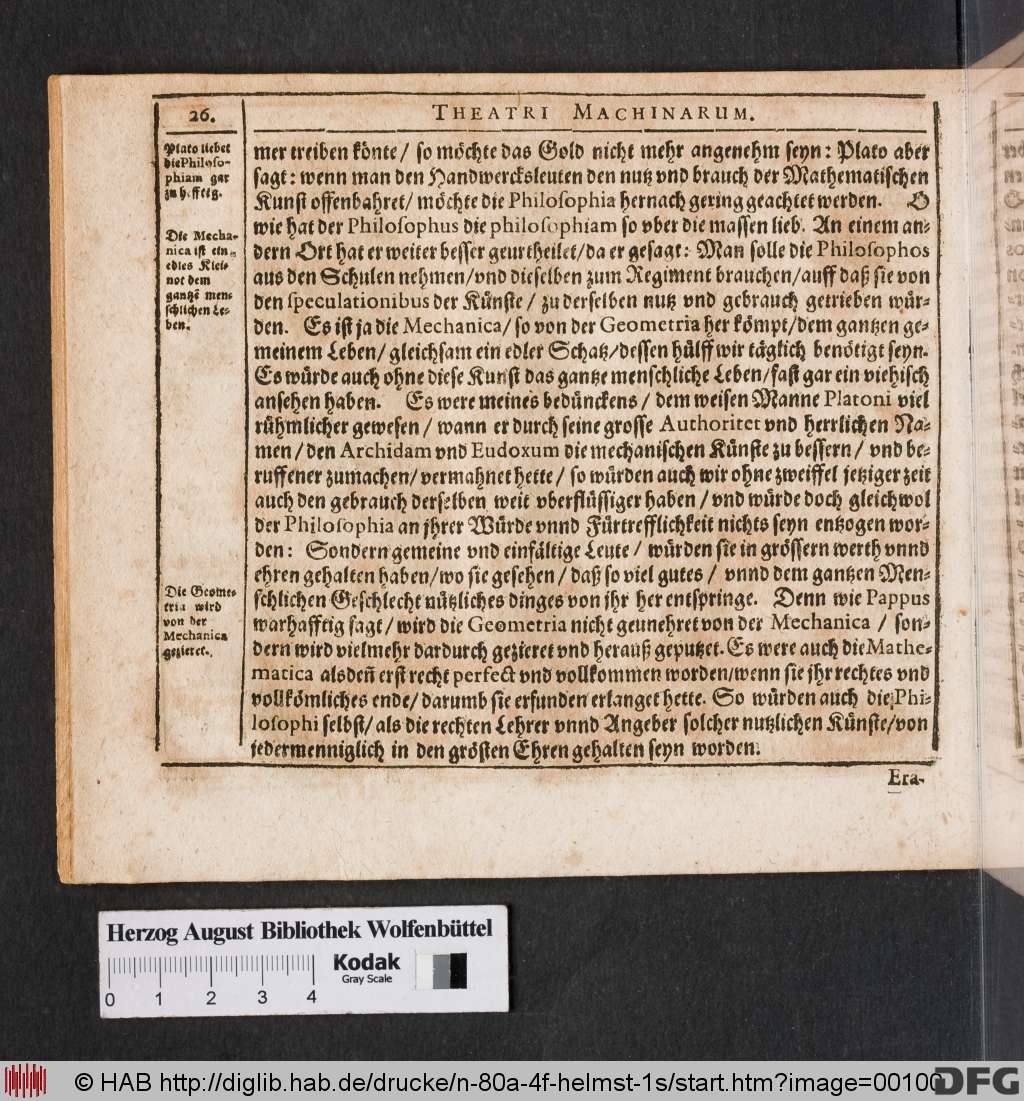 26.
THEATRI MACHINARUM.
Plato liebet
die Philoso-
phiam gar
zu hefftig.
Die Mecha-
nica ist ein
edles Klei-
not dem
gantzẽ men-
schlichen Le-
ben.
Die Geome-
tria wird
von der
Mechanica
gezieret.
mer treiben könte/ so möchte das Gold nicht mehr angenehm seyn: Plato aber
sagt: wenn man den Handwercksleuten den nutz vnd brauch der Mathematischen
Kunst offenbahret/ möchte die Philosophia hernach gering geachtet werden. O
wie hat der Philosophus die philosophiam so vber die massen lieb. An einem an-
dern Ort hat er weiter besser geurtheilet/ da er gesagt: Man solle die Philosophos
aus den Schulen nehmen/ vnd dieselben zum Regiment brauchen/ auff daß sie von
den speculationibus der Künste/ zu derselben nutz vnd gebrauch getrieben wür-
den. Es ist ja die Mechanica/ so von der Geometria her kömpt/ dem gantzen ge-
meinem Leben/ gleichsam ein edler Schatz/ dessen hülff wir täglich benötigt seyn.
Es würde auch ohne diese Kunst das gantze menschliche Leben/ fast gar ein viehisch
ansehen haben. Es were meines bedünckens/ dem weisen Manne Platoni viel
rühmlicher gewesen/ wann er durch seine grosse Authoritet vnd herrlichen Na-
men/ den Archidam vnd Eudoxum die mechanischen Künste zu bessern/ vnd be-
ruffener zumachen/ vermahnet hette/ so würden auch wir ohne zweiffel jetziger zeit
auch den gebrauch derselben weit vberflüssiger haben/ vnd würde doch gleichwol
der Philosophia an jhrer Würde vnnd Fürtrefflichkeit nichts seyn entzogen wor-
den: Sondern gemeine vnd einfältige Leute/ würden sie in grössern werth vnnd
ehren gehalten haben/ wo sie gesehen/ daß so viel gutes/ vnnd dem gantzen Men-
schlichen Geschlecht nützliches dinges von jhr her entspringe. Denn wie Pappus
warhafftig sagt/ wird die Geometria nicht geunehret von der Mechanica/ son-
dern wird vielmehr dardurch gezieret vnd herauß geputzet. Es were auch die Mathe-
matica alsdeñ erst recht perfect vnd vollkommen worden/ wenn sie jhr rechtes vnd
vollkömliches ende/ darumb sie erfunden erlanget hette. So würden auch die Phi-
losophi selbst/ als die rechten Lehrer vnnd Angeber solcher nutzlichen Künste/ von
jedermenniglich in den grösten Ehren gehalten seyn worden.
Era-
Herzog August Bibliothek Wolfenbüttel
Kodak
Gray Scale
0 1 2 3 4
© HAB http://diglib.hab.de/drucke/n-80a-4f-helmst-1s/start.htm?image=00100
DFG